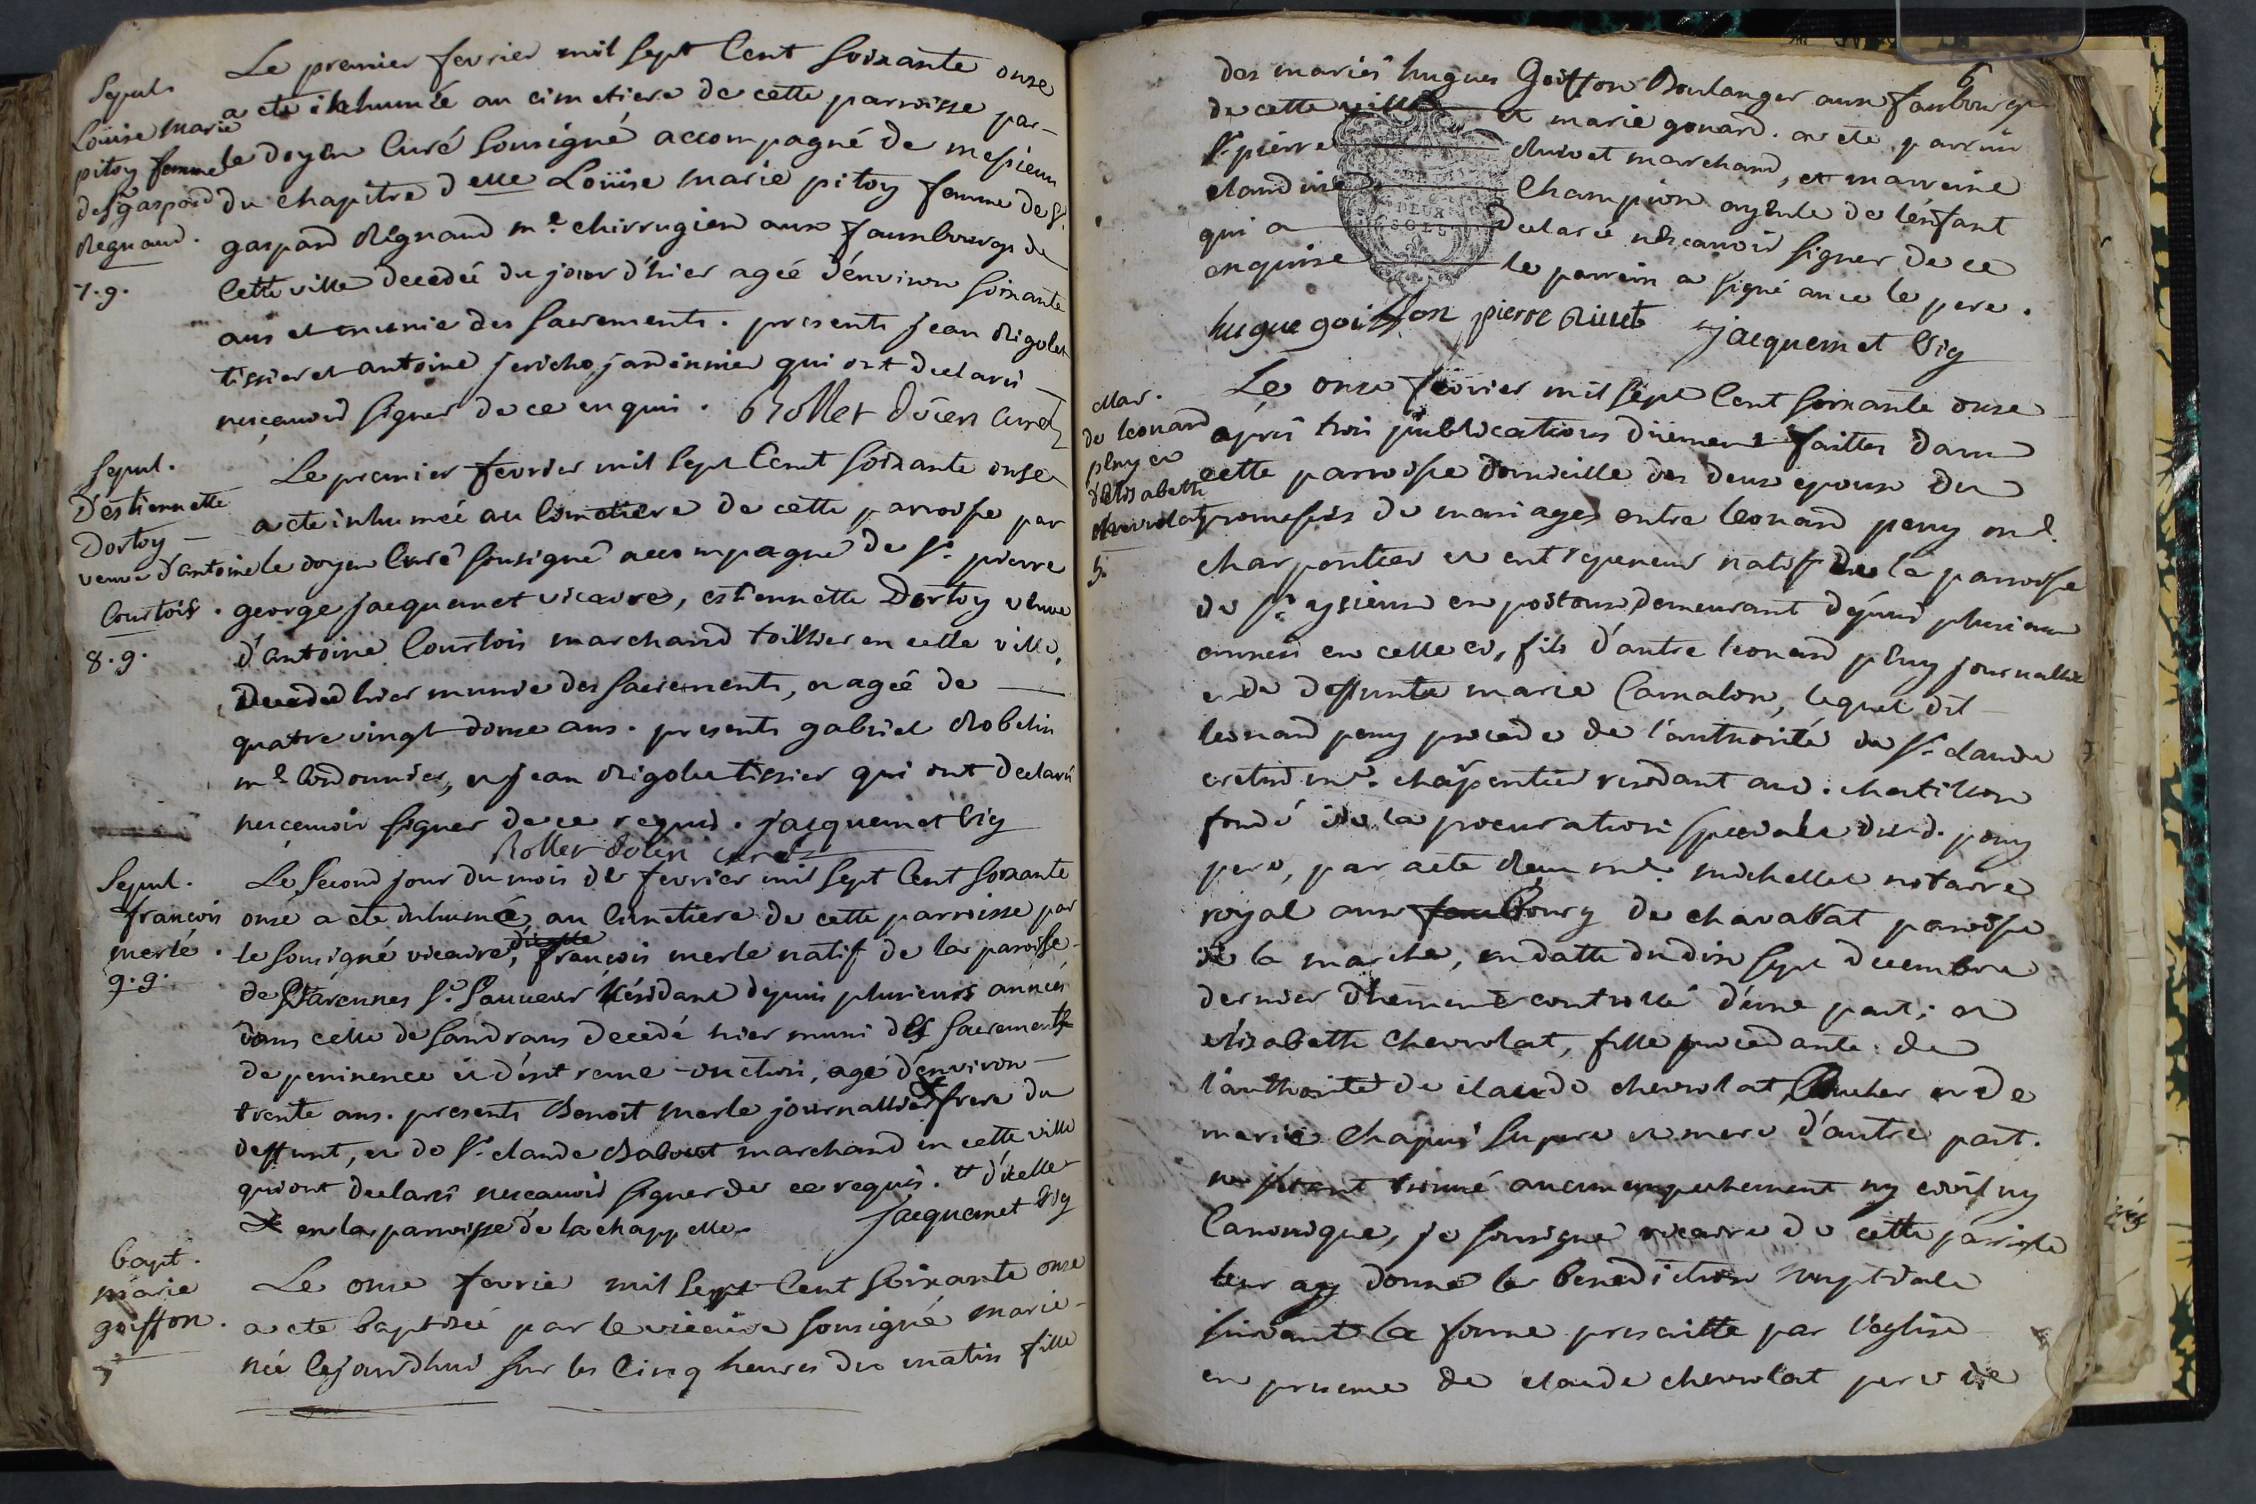 Sepul.
Loüise Marie
pitoy femme
de Sr gaspard
Regnaud.
7.9.
Le premier fevrier mil sept Cent soixante onze
a eté inhumée au cimetiere de cette parroisse par
le doyen Curé soussigné accompagné de messieurs
du chapitre delle Loüise Marie pitoy femme de Sr.
gaspard Régnaud me. chirrugien aux fauxbourgs de
Cette ville decedée du jour d'hier agée d'environ soixante
ans et munie des sacrements. presents jean Rigolet
tissier et antoine jericho jardinnier qui ont declarés
nesçavoir signer de ce enquis. Rollet doïen curé
Sepul.
D'estiennette
Dortoy
veuve d'antoine
Courtois.
8.9.
Le premier fevrier mil sept Cent soixante onze
a eté inhumée au Cimetiere de cette parroisse par
le doyen Curé soussigné accompagné de Sr. pierre
george jacquemet vicaire, estiennette Dortoy veuve
d'antoine Courtois marchand toillier en cette ville,
Decedée hier munie des sacrements, et agée de
quatre vingt douze ans. presents gabriel Robelin
me Cordonnier, et jean Rigolet tissier qui ont declaré
nesçavoir signer de ce requis. jacquemet vig
Rollet doïen curé
Sepul.
françois
merle.
9.9.
Le second jour du mois de fevrier mil sept Cent soixante
onze a eté inhumé au Cimetiere de cette parroisse par
le soussigné vicaire, françois merle natif de la paroisse
de Varennes St. Sauveur Résidant depuis plusieurs années
dans celle de Sandrans decedé hier muni des sacrements
de penitence et d'extreme-onction, agé d'environ
trente ans. presents Benoit Merle journallier frere du
deffunt, et de Sr. claude Raboret marchand en cette ville
qui ont declarés nesçavoir signer de ce requis. et d'icelle
en la parroisse de la chappelle. jacquemet vig
bapt.
marie
goiffon.
7
Le onze fevrie mil sept Cent soixante onze
a eté baptisée par le vicaire soussigné marie
née cejourdhui sur les Cinq heures du matin fille
6
des mariés hugues Goiffon Boulanger aux faubourgs
de cette ville et marie gonard. a eté parrain
Sr pierre Rivet marchand, et marreine
claudine Champion ayeule de l'enfant
qui a declaré nesçavoir signer de ce
enquise le parrein a signé avec le pere.
hugue goiffon pierre Rivet jacquemet vig
Mar.
de leonard
peny et
d'elisabeth
chevrolat
5.
Le onze fevrier mil sept Cent soixante onze
après trois publications düement faittes dans
cette parroisse domicille des deux epoux des
promesses de mariages entre leonard peny me.
charpentier et entrepreneur natif de la parroisse
de St. ysieux en poitoux, demeurant depuis plusieurs
années en celle ci, fils d'autre leonard peny journallier
et de deffunte marie Camalon, lequel dit
leonard peny procede de l'authorité de Sr. claude
me. charpentier residant aud. chatillon
fondé de la procuration specialle dud. peny
pere, par acte reçu me. michellet notaire
royal aux faubourg de chavabat paroisse
de la marche, en datte du dix sept decembre
dernier düement controllé d'une part; et
elisabeth chevrolat, fille procedante de
l'authorité de claude chevrolat, Boucher et de
marie Chapuis ses pere et mere d'autre part.
ne s'etant trouvé aucun empechement ny civil ny
Canonique, je soussigné vicaire de cette parroisse
leur ay donné la benediction nuptiale
suivant la forme prescritte par l'eglise
en presence de claude chevrolat pere de